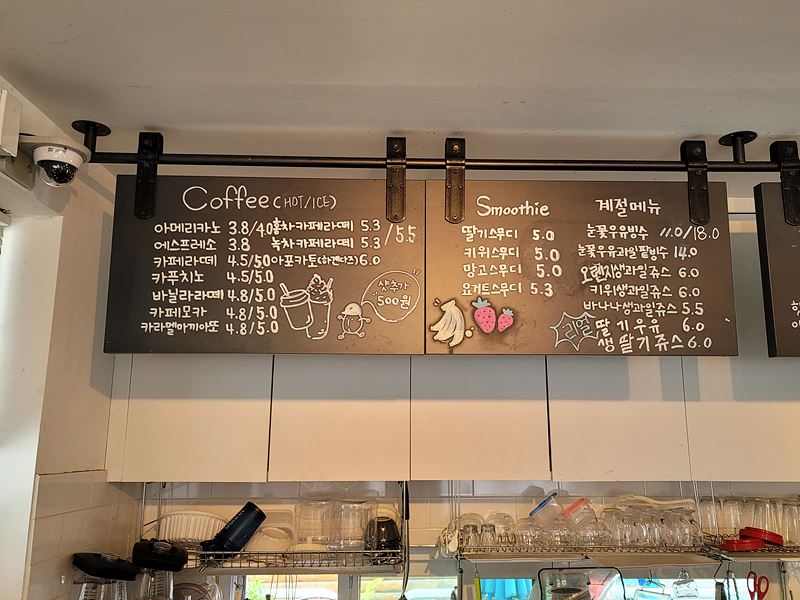 Coffee (HOT/ICE)
아메리카노 3.8/4.0
에스프레소 3.8
카페라떼 4.5/5.0
카푸치노 4.5/5.0
바닐라라떼 4.8/5.0
카페모카 4.8/5.0
카라멜마끼아또 4.8/5.0
홍차카페라떼 5.3
녹차카페라떼 5.3
/5.5
아포카토(하겐다즈) 6.0
샷추가
500원
Smoothie
딸기스무디 5.0
키위스무디 5.0
망고스무디 5.0
요거트스무디 5.3
계절메뉴
눈꽃우유빙수 11.0/18.0
눈꽃우유과일팥빙수 14.0
오렌지생과일쥬스 6.0
키위생과일쥬스 6.0
바나나생과일쥬스 5.5
리얼 딸기우유 6.0
생딸기쥬스 6.0